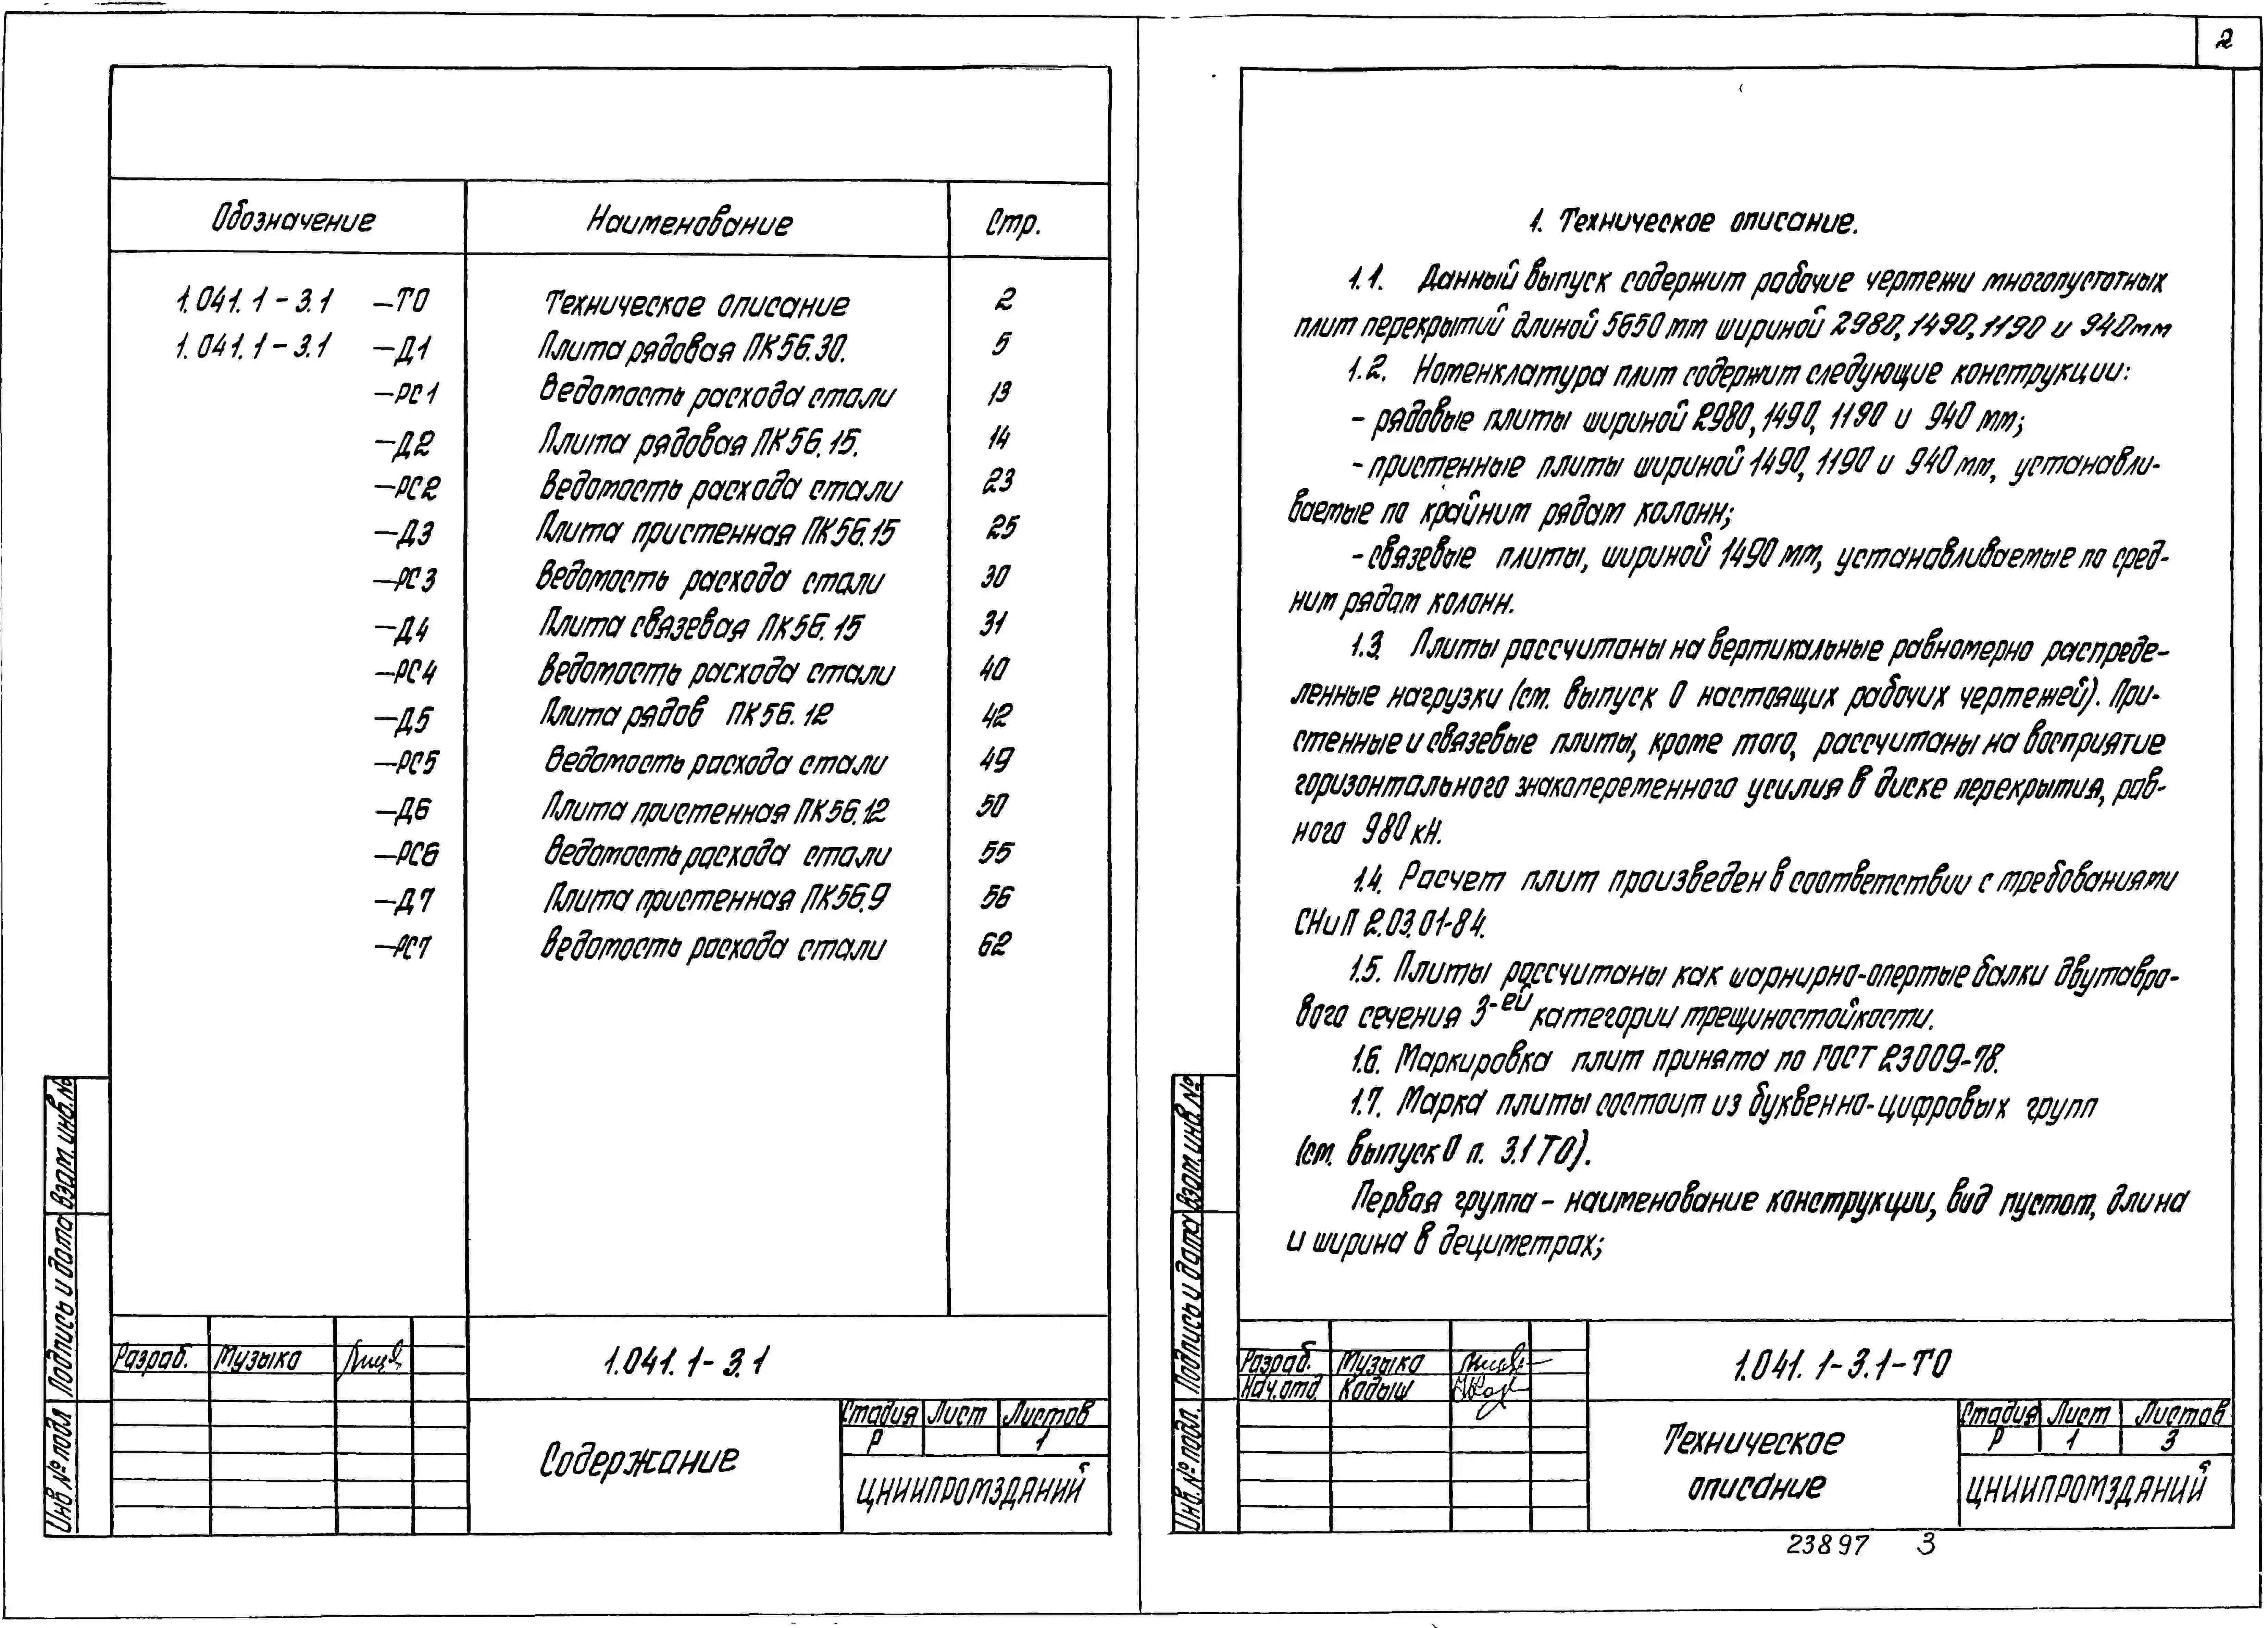 Обозначение Наименование Стр.
1.041.1-3.1 -ТО Техническое описание 2
1.041.1-3.1 -Д1 Плита рядовая ПК56.30. 5
-РС1 Ведомость расхода стали 13
-Д2 Плита рядовая ПК56.15. 14
-РС2 Ведомость расхода стали 23
-Д3 Плита пристенная ПК56.15 25
-РС3 Ведомость расхода стали 30
-Д4 Плита связевая ПК56.15 31
-РС4 Ведомость расхода стали 40
-Д5 Плита рядов ПК56.12 42
-РС5 Ведомость расхода стали 49
-Д6 Плита пристенная ПК56.12 50
-РС6 Ведомость расхода стали 55
-Д7 Плита пристенная ПК56.9 56
-РС7 Ведомость расхода стали 62
Взам. инв. №
Подпись и дата
Инв № подл
Разраб. Музыка
1.041.1-3.1
Содержание
Стадия Лист Листов
Р 1
ЦНИИПРОМЗДАНИЙ
2
1. Техническое описание.
1.1. Данный выпуск содержит рабочие чертежи многопустотных
плит перекрытий длиной 5650 мм шириной 2980, 1490, 1190 и 940мм
1.2. Номенклатура плит содержит следующие конструкции:
- рядовые плиты шириной 2980, 1490, 1190 и 940 мм;
- пристенные плиты шириной 1490, 1190 и 940 мм, устанавли-
ваемые по крайним рядам колонн;
- связевые плиты, шириной 1490 мм, устанавливаемые по сред-
ним рядам колонн.
1.3. Плиты рассчитаны на вертикальные равномерно распреде-
ленные нагрузки (см. выпуск 0 настоящих рабочих чертежей). При-
стенные и связевые плиты, кроме того, рассчитаны на восприятие
горизонтального знакопеременного усилия в диске перекрытия, рав-
ного 980 кН.
1.4. Расчет плит произведен в соответствии с требованиями
СНиП 2.03.01-84.
1.5. Плиты рассчитаны как шарнирно-опертые балки двутавро-
вого сечения 3-ей категории трещиностойкости.
1.6. Маркировка плит принята по ГОСТ 23009-78.
1.7. Марка плиты состоит из буквенно-цифровых групп
(см. выпуск 0 п. 3.1 ТО).
Первая группа - наименование конструкции, вид пустот, длина
и ширина в дециметрах;
Взам. инв №
Подпись и дата
Инв. № подл.
Разраб. Музыка
Нач.отд. Кадыш
1.041.1-3.1-ТО
Техническое
описание
Стадия Лист Листов
Р 1 3
ЦНИИПРОМЗДАНИЙ
23897 3